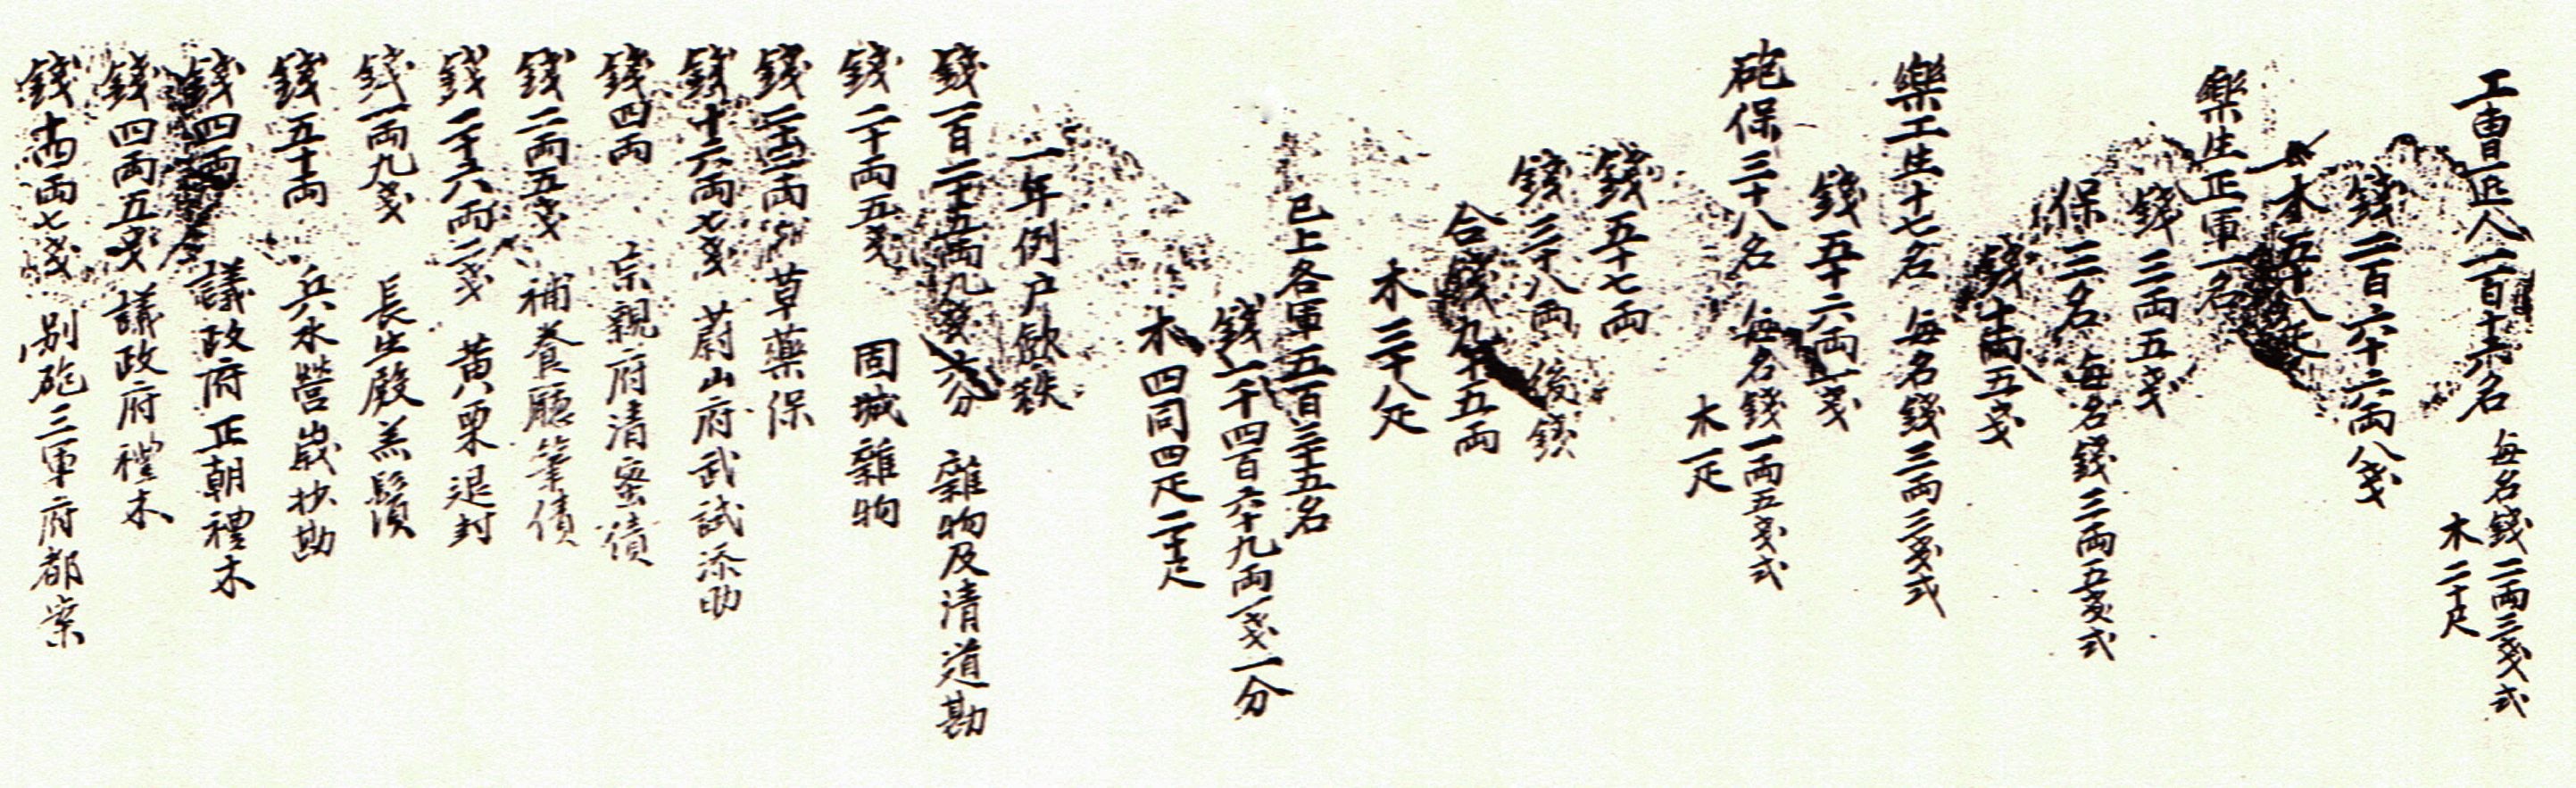 工曹匠人一百十六名 每名錢二兩三戔式
木二十尺
錢二百六十六兩八戔
木五十八疋
樂生正軍一名
錢三兩五戔
保三名 每名錢三兩五戔式
錢十兩五戔
樂工生十七名 每名錢三兩三戔式
錢五十六兩一戔
砲保三十八名 每名錢一兩五戔式
木一疋
錢五十七兩
錢三十八兩 後錢
合錢九十五兩
木三十八疋
已上各軍五百三十五名
錢一千四百六十九兩一戔一分
木四同四疋二十尺
一年例戶歛秩
錢一百二十五兩九戔六分 雜物及清道勘
錢二十兩五戔 固城雜物
錢二十三兩 草藥保
錢十六兩七戔 蔚山府武試添助
錢四兩 宗親府清蜜債
錢二兩五戔 補養廳筆債
錢二十六兩二戔 黄栗退封
錢一兩九戔 長生殿羔鬚
錢五十兩 兵水營歲抄勘
錢四兩 議政府正朝禮木
錢四兩五戔 議政府禮木
錢十四兩七戔 別砲三軍府都案